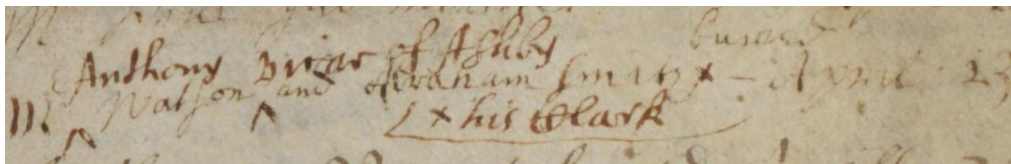 buried
Anthony vicar of Ashby
Mr Watson and Abraham Smith × – April 23
× his Clark